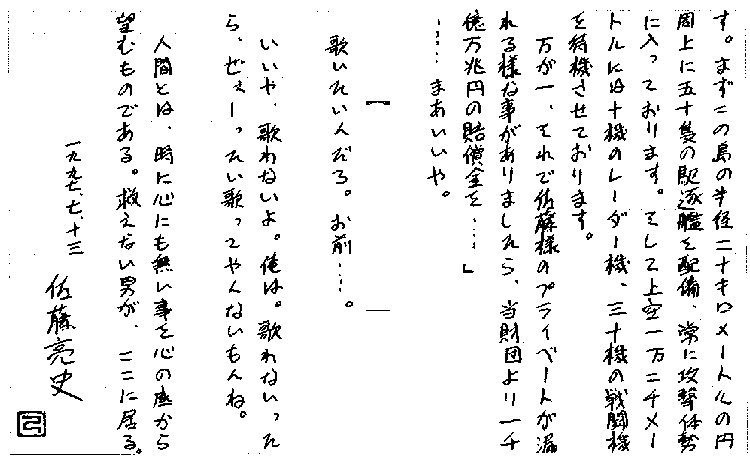 す。まずこの島の半径二十キロメートルの円
周上に五十隻の駆逐艦を配備、常に攻撃体勢
に入っております。そして上空一万二千メー
トルには十機のレーダー機、三十機の戦闘機
を待機させております。
万が一、それで佐藤様のプライベートが漏
れる様な事がありましたら、当財団より一千
億万兆円の賠償金を……」
……まあいいや。
歌いたいんだろ。お前……。
いいや、歌わないよ。俺は。歌わないった
ら、ぜぇーったい歌ってやんないもんね。
人間とは、時に心にも無い事を心の底から
望むものである。救えない男が、ここに居る。
一九九七、七、十三
佐藤亮史